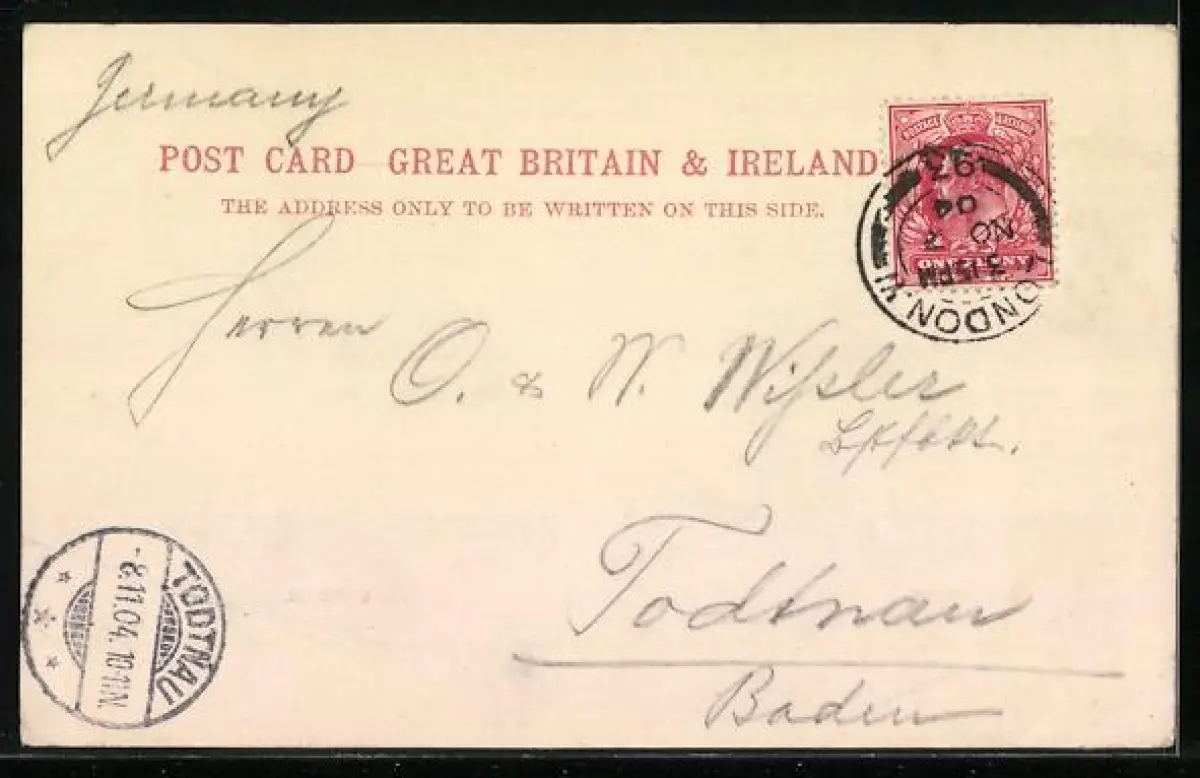 Germany
POST CARD GREAT BRITAIN & IRELAND
THE ADDRESS ONLY TO BE WRITTEN ON THIS SIDE.
POSTAGE REVENUE
ONE PENNY
LONDON. W.
3.15 PM
NO 7
04
93
Herren
O. & W. Wißler
Todtnau
Baden
TODTNAU
-8.11.04. 10-11N.